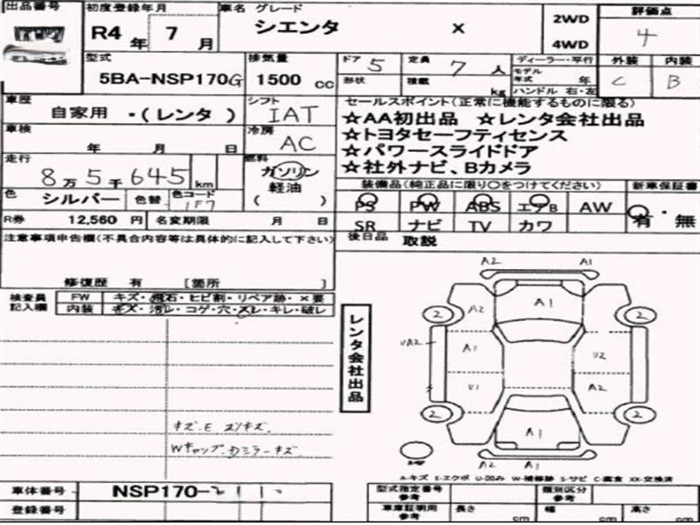 出品番号
初度登録年月 R4年 7月
車名 グレード シエンタ X
2WD 4WD
評価点 4
型式 5BA-NSP170G
排気量 1500 cc
ドア 5 定員 7人
形状 積載 kg
ディーラー・平行
モデル年式 年
ハンドル 右・左
外装 C 内装 B
車歴 自家用 ・(レンタ)
シフト IAT
車検 年 月 日
冷房 AC
走行 8万5千645 km
燃料 ガソリン 軽油 ( )
色 シルバー 色替 色コード 1F7
R券 12,560 円 名変期限 月 日
セールスポイント(正常に機能するものに限る)
☆AA初出品 ☆レンタ会社出品
☆トヨタセーフティセンス
☆パワースライドドア
☆社外ナビ、Bカメラ
装備品(純正品に限り〇をつけてください) 新車保証書
PS PW ABS エアB AW 有・無
SR ナビ TV カワ
後日品 取説
注意事項申告欄(不具合内容等は具体的に記入して下さい)
修復歴 有 [箇所 ]
検査員記入欄
FW キズ・飛石・ヒビ割・リペア跡・×要
内装 キズ・汚レ・コゲ・穴・スレ・キレ・破レ
レンタ会社出品
A2 A2
A1
2 A2 A1 2
UA2 A1 U2
U1 A2
2 A1 2
A1
キズ.E スリキズ
Wキャップ.ドミラーキズ
A-キズ E-エクボ U-凹み W-補修跡 S-サビ C-腐食 XX-交換済
車体番号 NSP170-211
登録番号
型式指定番号 参考 類別区分 参考
車庫証明用 参考 長さ cm 幅 cm 高さ cm